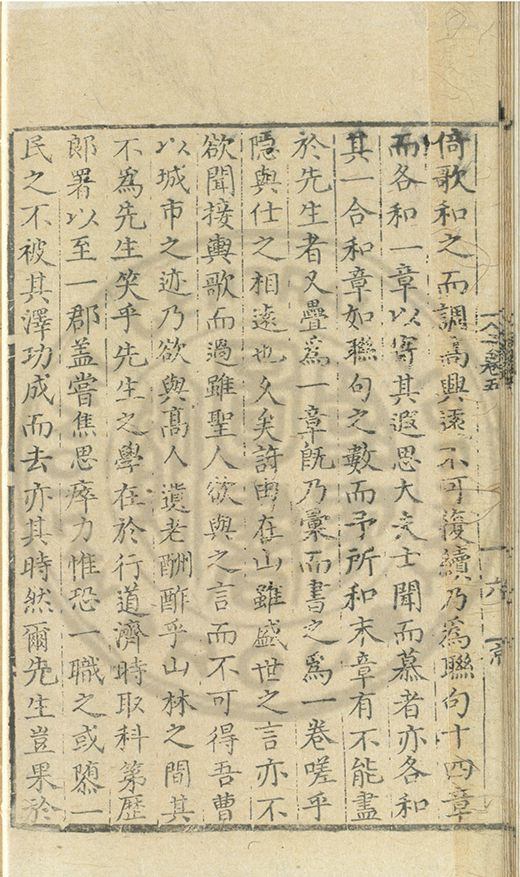 倚歌和之而調高興遠不可復續乃爲聯句十四章
而各和一章以寄其遐思大夫士聞而慕者亦各和
其一合和章如聯句之數而予所和末章有不能盡
於先生者又疊爲一章旣乃彙而書之爲一卷嗟乎
隱與仕之相遠也久矣許由在山雖盛世之言亦不
欲聞接輿歌而過雖聖人欲與之言而不可得吾曹
以城市之迹乃欲與高人遺老酬酢乎山林之間其
不爲先生笑乎先生之學在於行道濟時取科第歷
郎署以至一郡盖嘗焦思瘁力惟恐一職之或隳一
民之不被其澤功成而去亦其時然爾先生豈果於
卷五
六